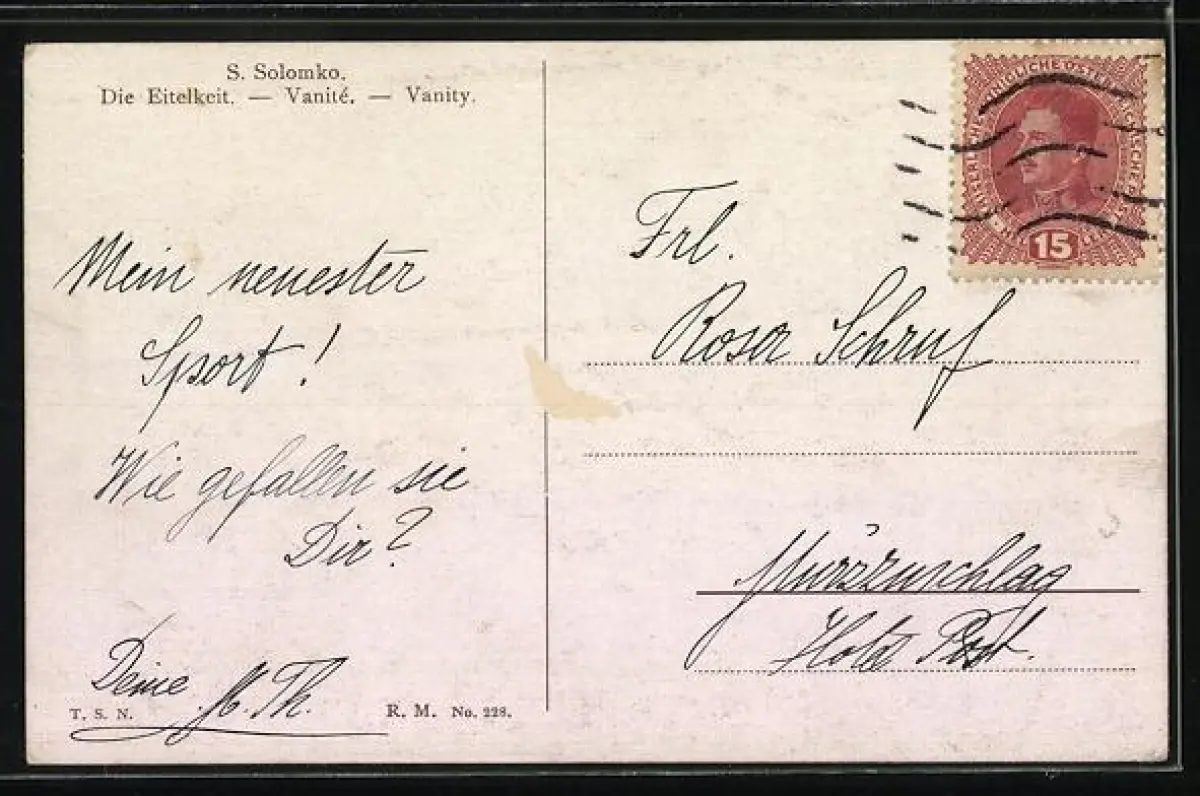 S. Solomko.
Die Eitelkeit. — Vanité. — Vanity.
Mein neuester
Sport!
Wie gefallen sie
Dir?
Deine M. Th.
T. S. N.
R. M. No. 228.
KAISERLICHE KÖNIGLICHE ÖSTERREICHISCHE
15
Frl.
Rosa Schruf
Mürzzuschlag
Hotel Post.